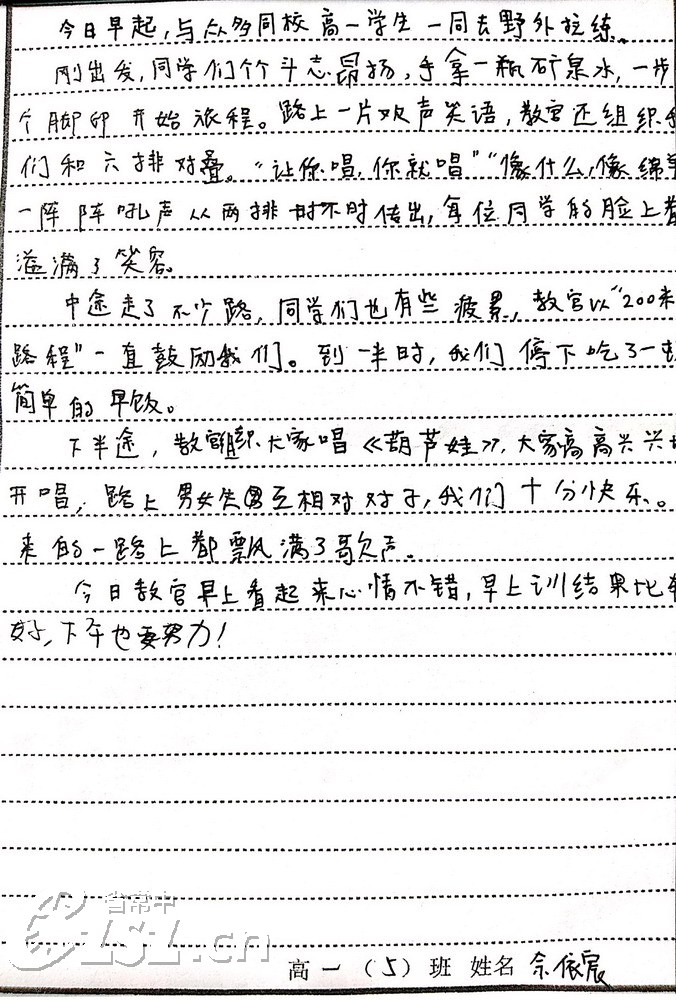 今日早起,与众多同校高一学生一同去野外拉练。
刚出发,同学们个个斗志昂扬,手拿一瓶矿泉水,一步
个脚印开始旅程。路上一片欢声笑语,教官还组织我
们和六排对叠。“让你唱,你就唱”“像什么,像绵羊
一阵阵吼声从两排时不时传出,每位同学的脸上都
溢满了笑容。
中途走了不少路,同学们也有些疲累,教官以“200米
路程”一直鼓励我们。到一半时,我们停下吃了一顿
简单的早饭。
下半途,教官组织大家唱《葫芦娃》,大家高高兴兴地
开唱,路上男女生互相对对子,我们十分快乐。
来的一路上都飘满了歌声。
今日教官早上看起来心情不错,早上训结果比较
好,下午也要努力!
省常中
CZSL.cn
高一(5)班 姓名 佘依宸